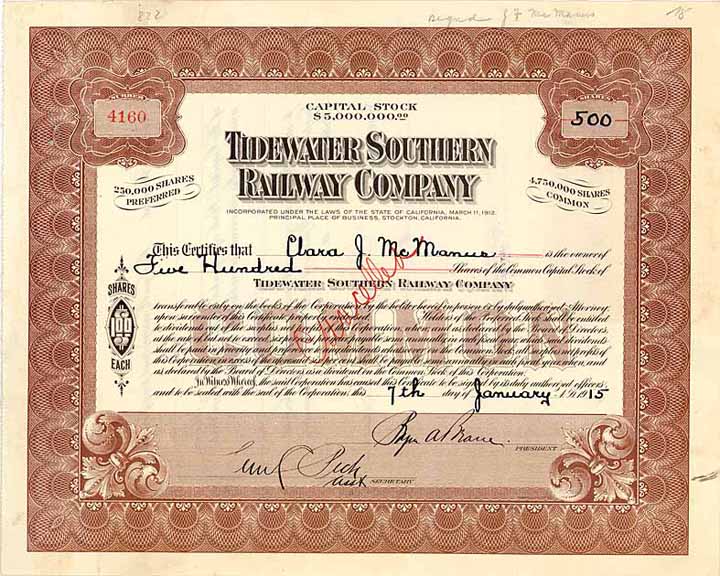 222
Signed J F McManus
15
NUMBER
4160
SHARES
500
CAPITAL STOCK
$5,000,000.00
TIDEWATER SOUTHERN
RAILWAY COMPANY
250,000 SHARES
PREFERRED
4,750,000 SHARES
COMMON
INCORPORATED UNDER THE LAWS OF THE STATE OF CALIFORNIA, MARCH 11, 1912.
PRINCIPAL PLACE OF BUSINESS, STOCKTON, CALIFORNIA.
This Certifies that Clara J. McManus is the owner of
Five Hundred Shares of the Common Capital Stock of
TIDEWATER SOUTHERN RAILWAY COMPANY
Cancelled
SHARES
$1.00
EACH
transferable only on the books of the Corporation by the holder hereof in person or by duly authorized Attorney
upon surrender of this Certificate properly endorsed. Holders of the Preferred Stock shall be entitled
to dividends out of the surplus net of this Corporation, when and as declared by the Board of Directors,
at the rate of but not to exceed six per annum payable semi annually in each fiscal year, which said dividends
shall be paid in priority and preference to dividends whenever on the Common Stock, all surplus net profits of
this Corporation in excess of the aforesaid six per cent shall be payable semi annually in each fiscal year, when, and
as declared by the Board of Directors as a dividend on the Common Stock of this Corporation.
In Witness Whereof, the said Corporation has caused this Certificate to be signed by its duly authorized officers
and to be sealed with the seal of the Corporation, this 7th day of January A.D. 1915
PRESIDENT
Peck
Asst SECRETARY